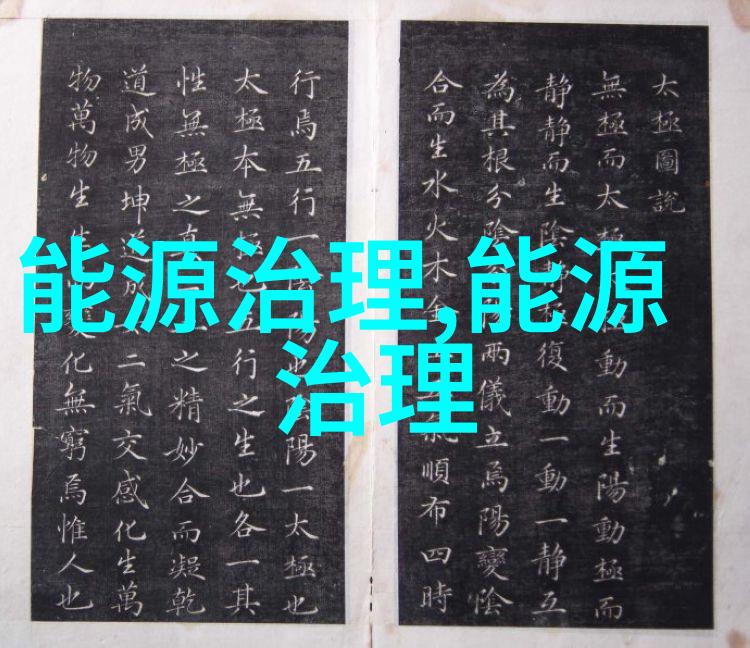 太極圖說
無極而太動而生陽動極而
静静而生陰静極復動一動一静互
為其根分陰兩儀立焉陽變陰
合而生水火木金順布四時
行焉五行一陰陽也陰陽一太極也
太極本無極也五行之生也各一其
性無極之真之精妙合而凝乾
道成男坤道成二氣交感化生萬
物萬物生生變化無窮焉惟人也
能源治理,能源
治理